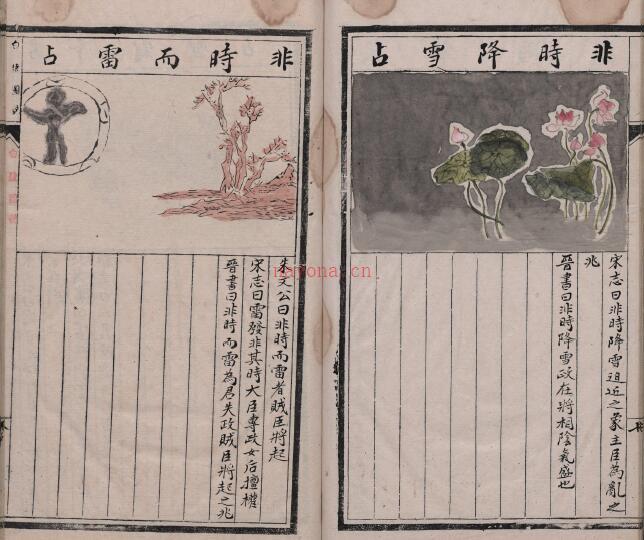 非時降雪占
宋志曰非時降雪迫近之象主臣為亂之
兆
晉書曰非時降雪政在將相陰氣盛也
非時而雷占
朱文公曰非時而雷者賊臣將起
宋志曰雷發非其時大臣專政女后擅權
晉書曰非時而雷為君失政賊臣將起之兆
nayona.cn